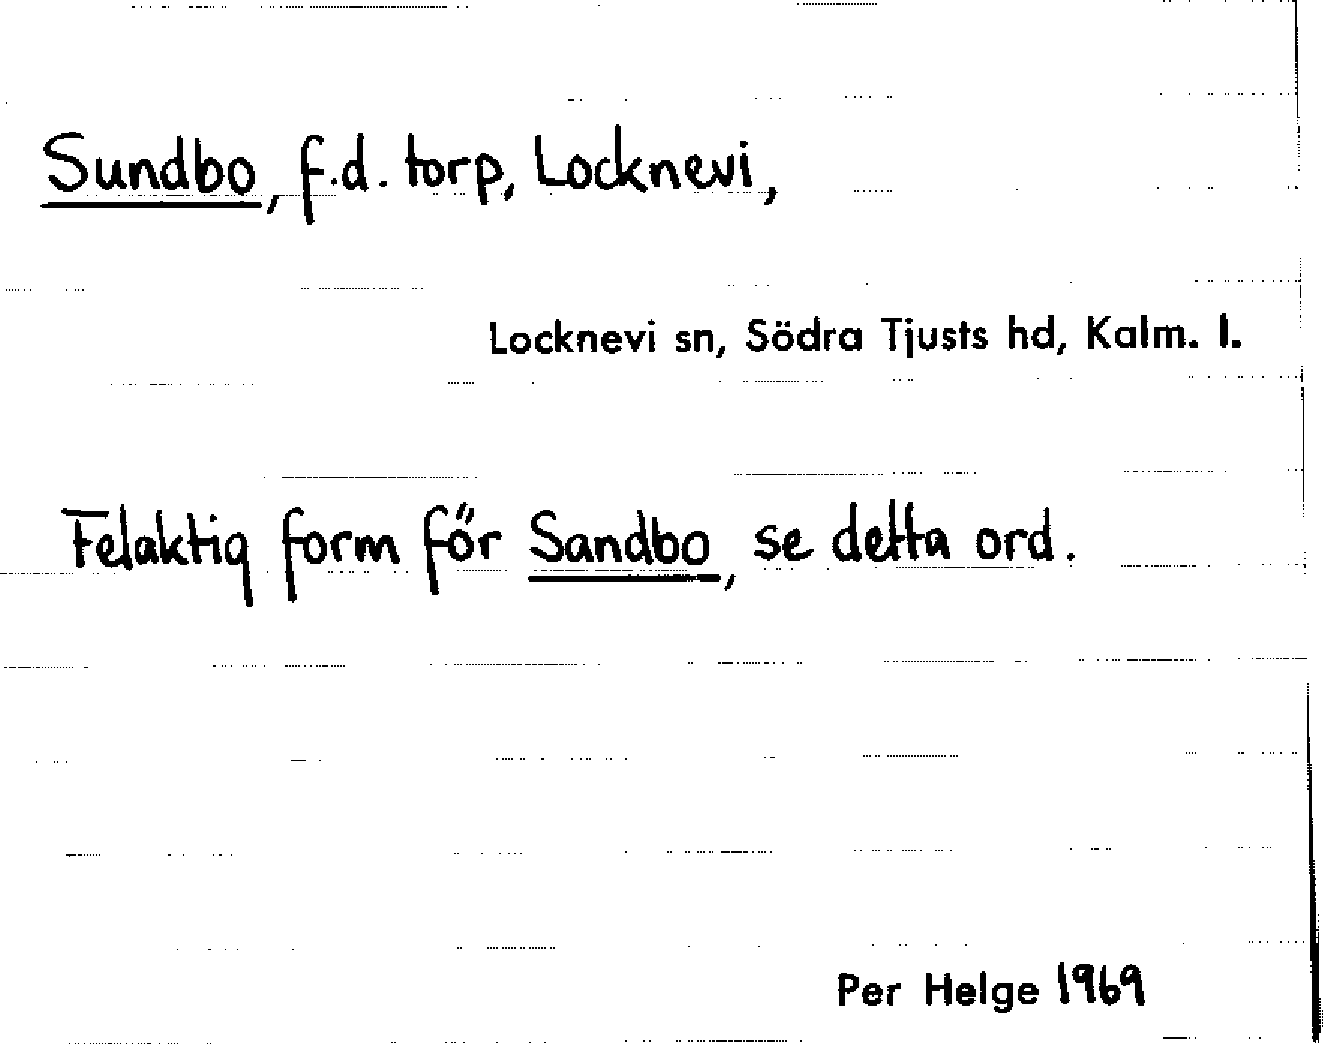 Sundbo, f.d. torp, Locknevi,
Locknevi sn, Södra Tjusts hd, Kalm. l.
Felaktig form för Sandbo, se detta ord.
Per Helge 1969